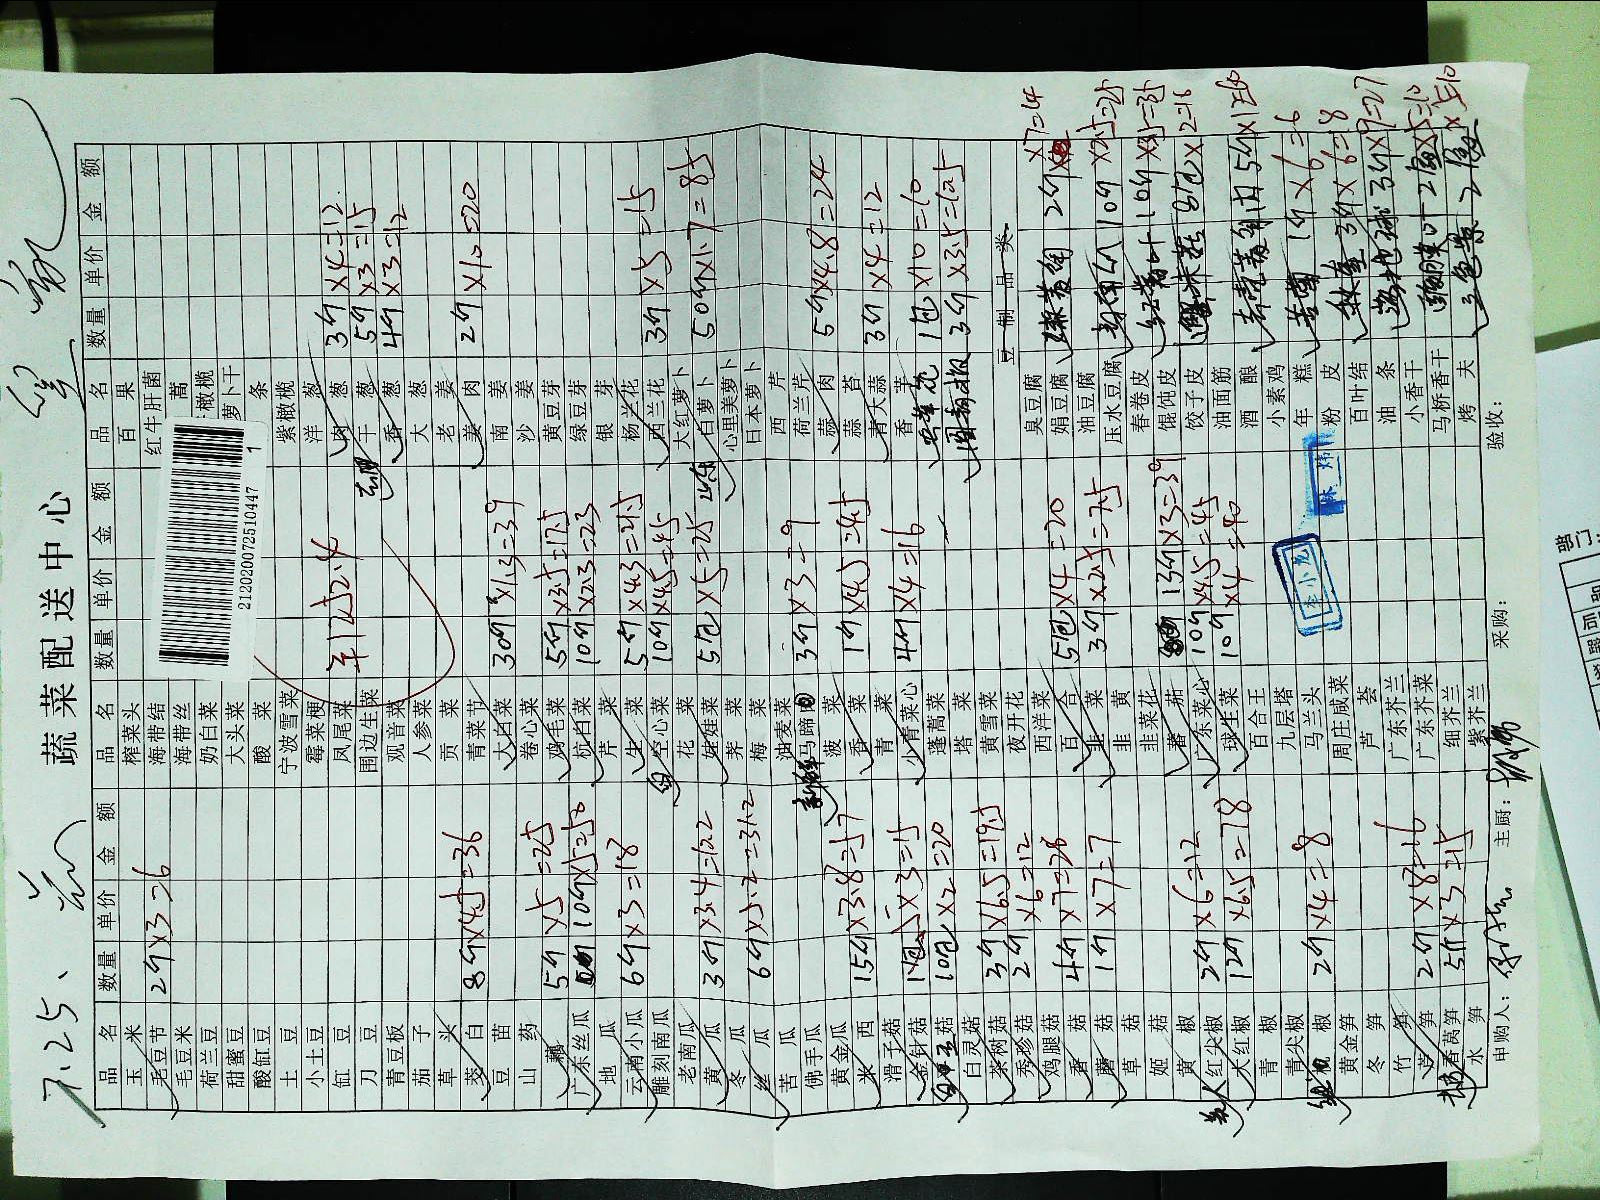 7.25、
蔬菜配送中心
212020072510447 1
品名 数量 单价 金额
玉米
毛豆节 2斤×3=6
毛豆米
荷兰豆
甜蜜豆
酸缸豆
土豆
小土豆
缸豆
刀豆
青豆板
茄子
草头
茭白 8斤×4.5=36
豆苗
山药
藕 5斤×5=25
广东丝瓜 10斤×5=50
地瓜
云南小瓜 6斤×3=18
雕刻南瓜
老南瓜
黄瓜 3斤×3.4=10.2
冬瓜
丝瓜 6斤×5.2=31.2
苦瓜
佛手瓜
黄金瓜
米西 15斤×3.8=57
滑子菇
金针菇 ×3=15
玉菇 10包×2=20
白灵菇
茶树菇 3斤×6.5=19.5
秀珍菇 2斤×6=12
鸡腿菇
香菇 4斤×7=28
蘑菇 1斤×7=7
草菇
姬菇
黄椒
红尖椒 2斤×6=12
大红椒 12斤×6.5=78
青椒
青尖椒
椒 2斤×4=8
黄金笋
冬笋
竹笋
笋 2斤×8=16
香莴笋 5斤×3=15
水笋
品名 数量 单价 金额
榨菜头
海带结
海带丝
奶白菜
大头菜
酸菜
宁波雪菜
霉菜梗
凤尾菜
围边生菜
¥1252.4
观音菜
人参菜
贡菜
青菜节
大白菜 30斤×1.3=39
卷心菜
鸡毛菜 5斤×3.5=17.5
杭白菜 10斤×2.3=23
芹菜
生菜 5斤×4.3=21.5
空心菜 10斤×4.5=45
花菜
娃娃菜 5包×5=25
荠菜
梅菜
油麦菜
新鲜马蹄 3斤×3=9
菠菜
香菜 1斤×4.5=4.5
青菜
小青菜心 4斤×4=16
蓬蒿菜
塔菜
黄雪菜
夜开花
西洋菜
百合 5包×4=20
韭菜 3斤×2.5=7.5
韭黄
韭菜花
番茄 13斤×3=39
广东菜心 10斤×4.5=45
球生菜 10斤×4=40
百合王
九层塔
马兰头
周庄咸菜
芦荟
广东芥兰
广东芥菜
细芥兰
紫芥兰
品名 数量 单价 金额
百果
红牛肝菌
蒿
橄榄
萝卜干
条
紫橄榄
洋葱
肉葱 3斤×4=12
干葱 5斤×3=15
香葱 4斤×3=12
大葱
老姜
姜肉 2斤×10=20
南姜
沙姜
黄豆芽
绿豆芽
银芽
杨兰花
西兰花 3斤×5=15
大红萝卜
白萝卜 50斤×1.7=85
心里美萝卜
日本萝卜
西芹
荷兰芹
蒜肉 5斤×4.8=24
蒜苔
青大蒜 3斤×4=12
香芋
1包×10=10
3斤×3.5=10.5
豆制品类
臭豆腐
娟豆腐 2斤×7=14
油豆腐
压水豆腐 10斤×2.5=25
春卷皮
馄饨皮 10斤×3.5=35
饺子皮 8包×2=16
油面筋
酒酿 5斤×12=60
小素鸡
年糕 1斤×6=6
粉皮
百叶结 3斤×6=18
油条 3斤×9=27
小香干
马桥香干 ×5=10
烤夫 ×5=10
申购人：
主厨：
采购：
验收：
部门：